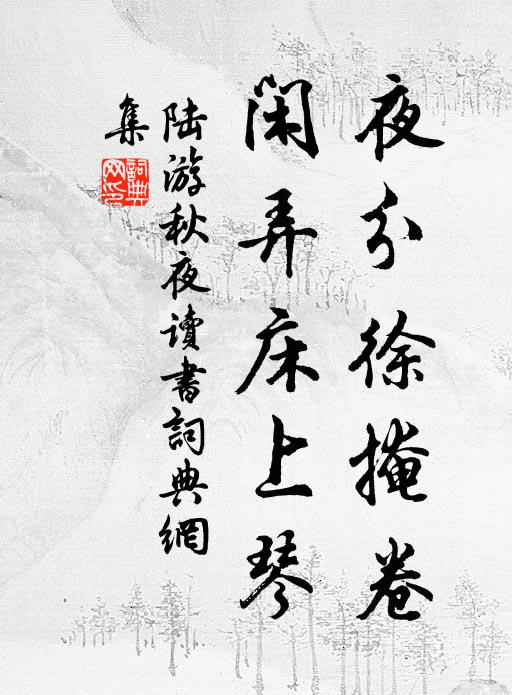 夜分徐掩卷
闲弄床上琴
陆游秋夜读书詞典網
集
詞典網印